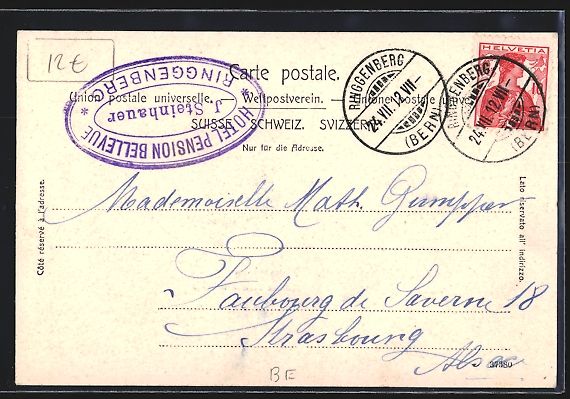 12 €
HELVETIA
Carte postale.
Union postale universelle. — Weltpostverein. — Unione postale universale
SUISSE. SCHWEIZ. SVIZZERA.
Nur für die Adresse.
* HOTEL PENSION BELLEVUE *
J. Steinhauer
RINGGENBERG
RINGGENBERG
24.VII.12.VII–
(BERN)
RINGGENBERG
24.VII.12.VII–
(BERN)
Côté réservé à l'adresse.
Lato riservato all' indirizzo.
Mademoiselle Math. Gumpper
Faubourg de Saverne 18
Strasbourg
Alsace
27580
BE